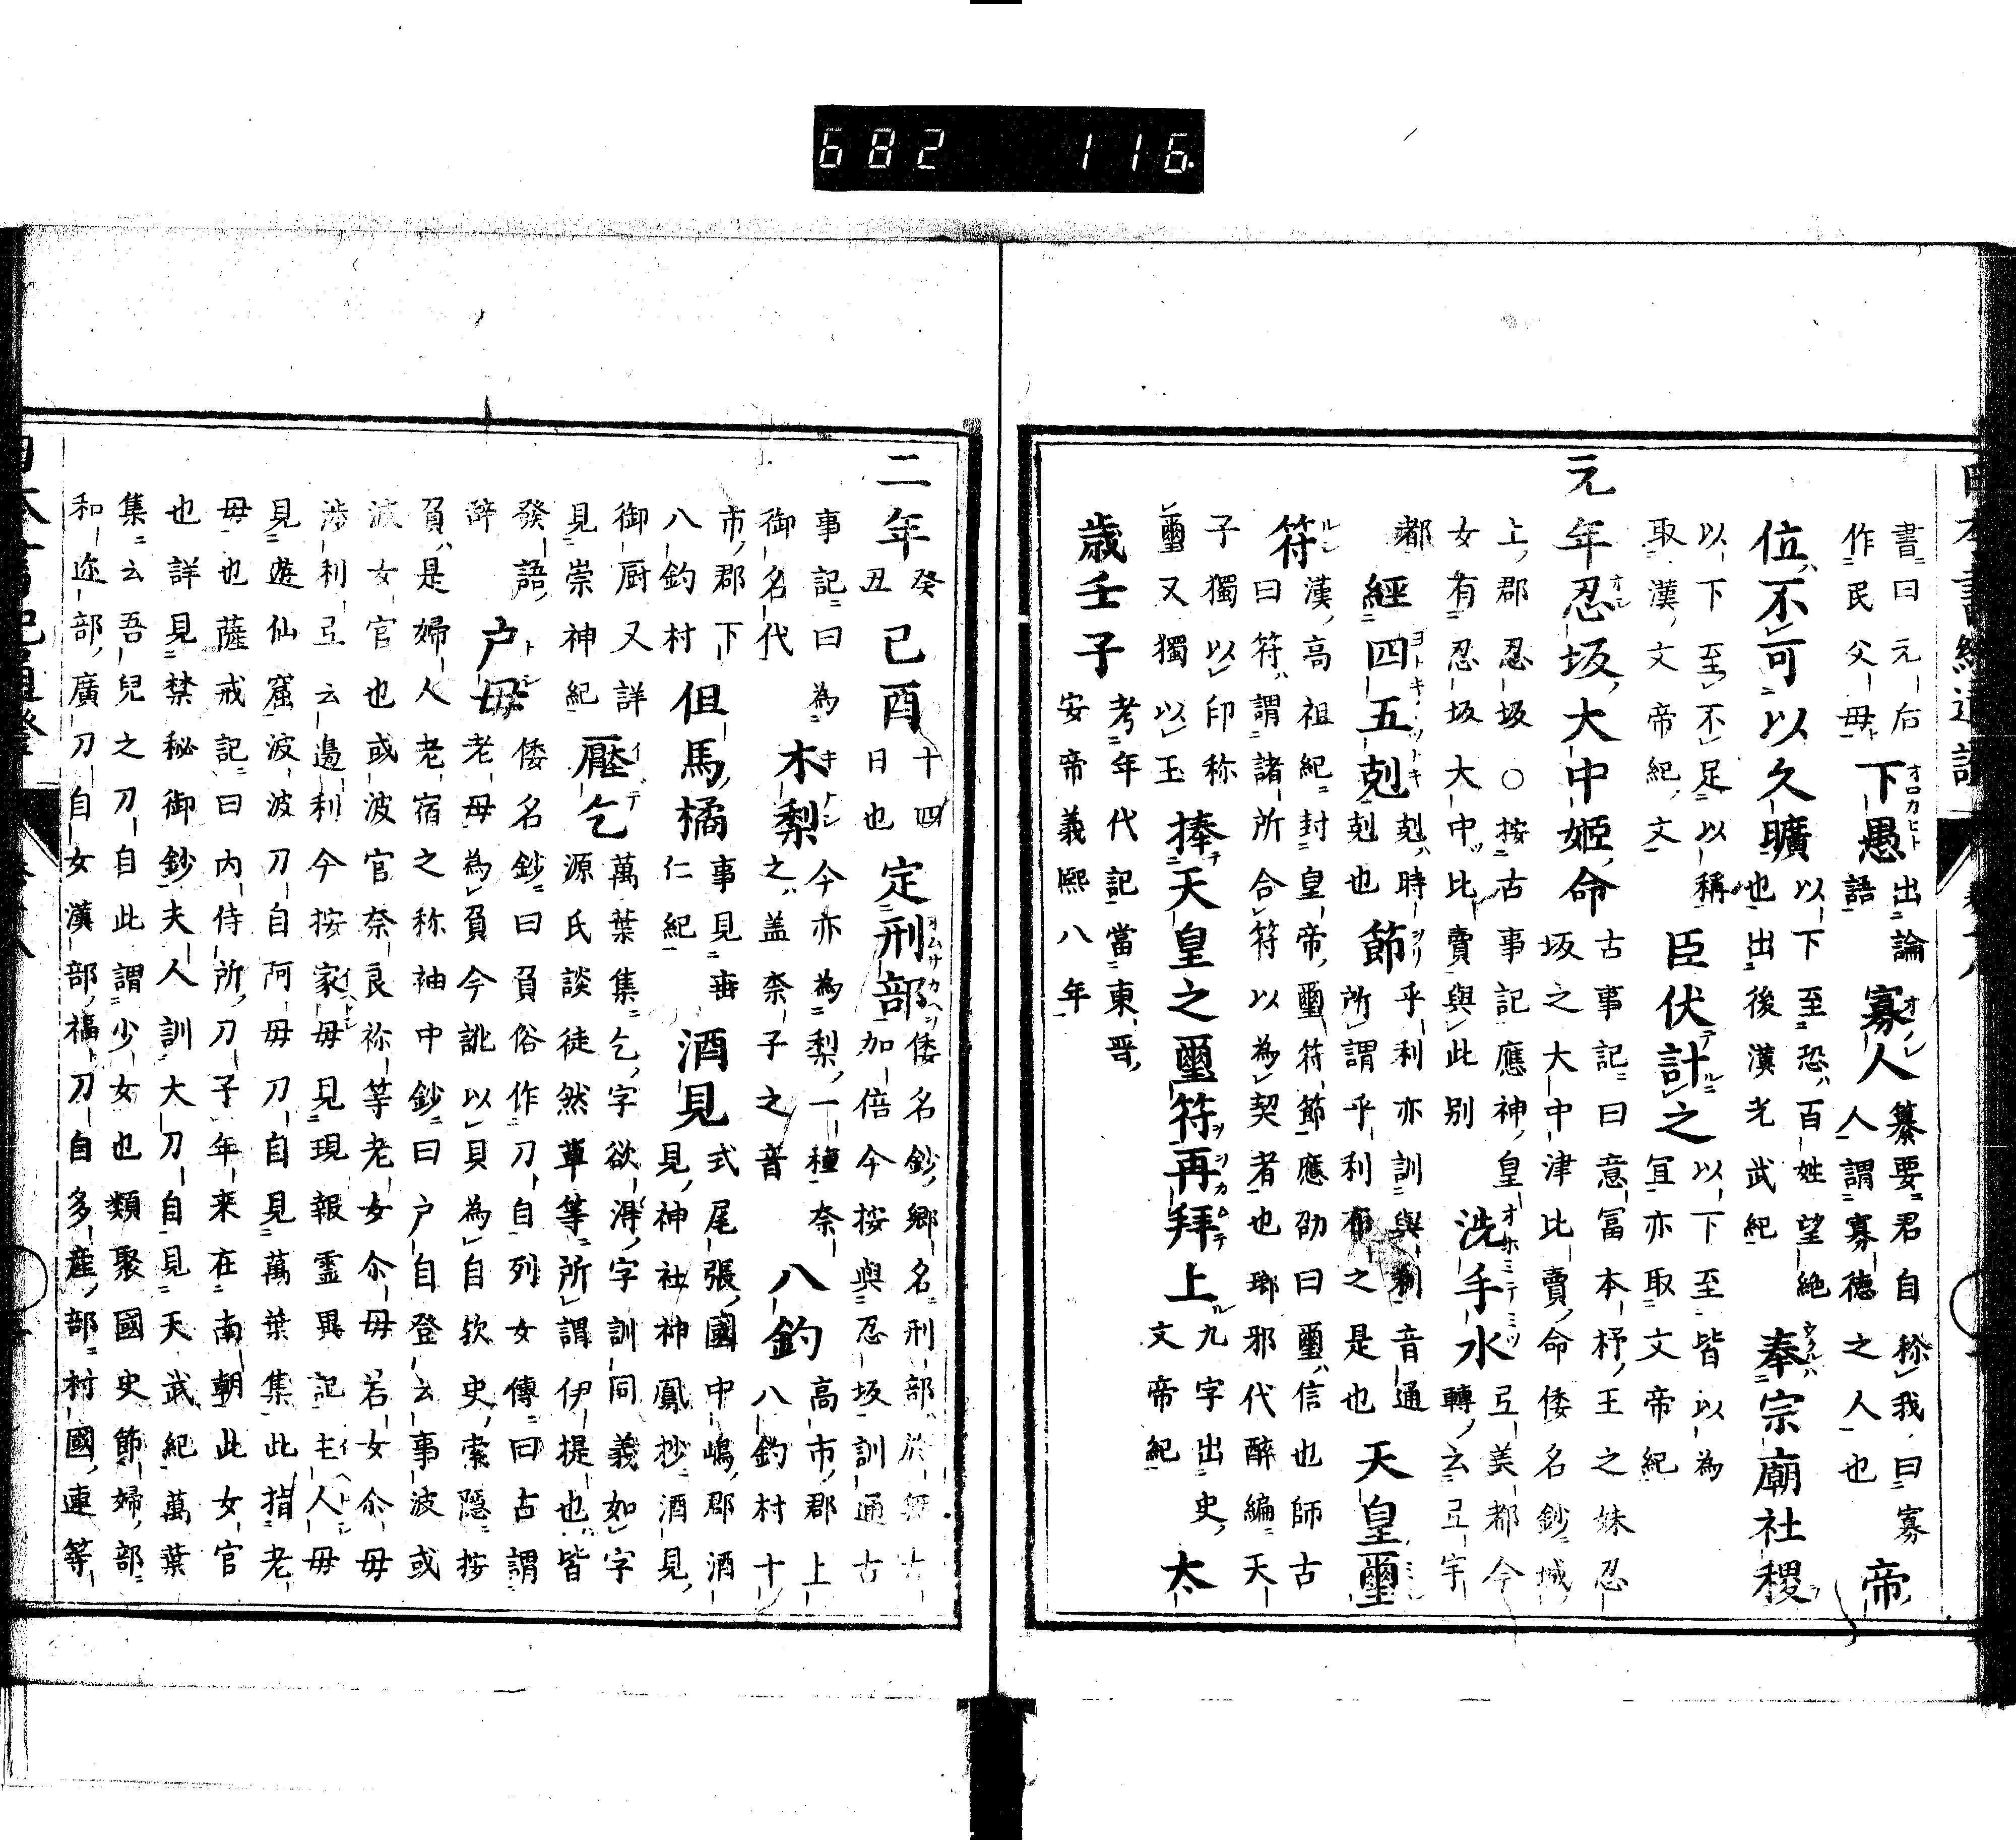 書曰元后
作民父母
下愚
出論
語
寡人
纂要君自称我曰寡
人謂寡徳之人也
帝
位不可以久曠
以下至恐百姓望絶
也出後漢光武紀
奉宗廟社稷
以下至不足以稱
取漢文帝紀文
臣伏計之
以下至皆以為
宜亦取文帝紀
元年忍坂大中姫命
古事記曰意冨本杼王之妹忍
坂之大中津比賣命倭名鈔城
上郡忍坂○按古事記應神皇
女有忍坂大中比賣與此別
洗手水
弖美都今
轉云弖宇
都
經四五剋
剋時
剋也
節
乎利亦訓與刹音通
所謂乎利布之是也
天皇璽
符
漢高祖紀封皇帝璽符節應劭曰璽信也師古
曰符謂諸所合符以為契者也瑯邪代醉編天
子獨以印称
璽又獨以玉
捧天皇之璽符再拜上
九字出史
文帝紀
太
歳壬子
考年代記當東晋
安帝義熙八年
二年
癸
丑
己酉
十四
日也
定刑部
倭名鈔郷名刑部於
加倍今按與忍坂訓通古
事記曰為
御名代
木梨
今亦為梨一種奈
之盖奈子之音
八釣
高市郡上
八釣村十
市郡下
八釣村
但馬橘
事見垂
仁紀
酒見
式尾張國中嶋郡酒
見神社神鳳抄酒見
御厨又詳
見崇神紀
壓乞
萬葉集乞字欲淂字訓同義如字
源氏談徒然草等所謂伊提也皆
發語
辞
戸毋
倭名鈔曰負俗作刀自列女傳曰古謂
老毋為負今訛以貝為自欤史索隠按
負是婦人老宿之称袖中鈔曰戸自登云事波或
波女官也或波官奈良祢等老女尒毋若女尒毋
渉利弖云邊利今按家毋見現報靈異記主人毋
見遊仙窟波波刀自阿毋刀自見萬葉集此指老
毋也薩戒記曰内侍所刀子年来在南朝此女官
也詳見禁秘御鈔夫人訓大刀自見天武紀萬葉
集云吾兒之刀自此謂少女也類聚國史節婦部
和迩部廣刀自女漢部福刀自多産部村國連等
682 116